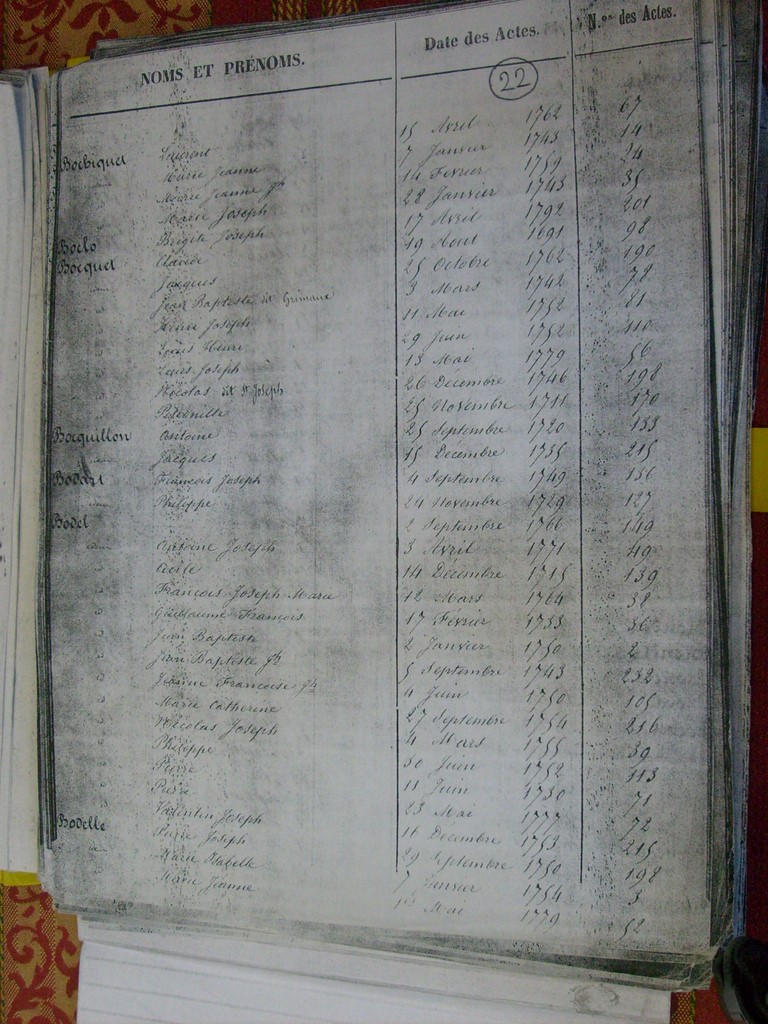 NOMS ET PRÉNOMS. Date des Actes. N.os des Actes.
22
Bochiquet Laurent 15 Avril 1762 67
Marie Jeanne 7 Janvier 1743 14
Marie Jeanne Jh 14 Fevrier 1759 24
Marie Joseph 28 Janvier 1743 35
Boclo Brigite Joseph 17 Avril 1792 201
Bocquet Claude 19 Aout 1691 98
Jacques 25 Octobre 1762 190
Jean Baptiste dit Grimaux 3 Mars 1742 78
Henri Joseph 11 Mai 1752 81
Louis Henri 29 Juin 1752 110
Louis Joseph 13 Mai 1779 56
Nicolas dit St Joseph 26 Decembre 1746 198
Petronille 25 Novembre 1711 170
Bocquillon Antoine 25 Septembre 1720 133
Jacques 15 Decembre 1735 215
Bodart François Joseph 4 Septembre 1749 136
Philippe 24 Novembre 1729 127
Bodel 2 Septembre 1766 149
Antoine Joseph 3 Avril 1771 49
Cecile 14 Décembre 1715 139
Francois Joseph Marie 12 Mars 1764 38
Guillaume Francois 17 Février 1733 36
Jean Baptiste 2 Janvier 1750 2
Jean Baptiste Jh 5 Septembre 1743 232
Jeanne Francoise Jh 4 Juin 1750 105
Marie Catherine 27 Septembre 1754 216
Nicolas Joseph 4 Mars 1755 39
Philippe 30 Juin 1752 113
Pierre 11 Juin 1730 71
Pierre 23 Mai 1777 72
Valentin Joseph 16 Decembre 1753 215
Bodelle Joseph 29 Septembre 1750 198
Marie Isabelle 7 Janvier 1754 3
Marie Jeanne Mai 1779 52